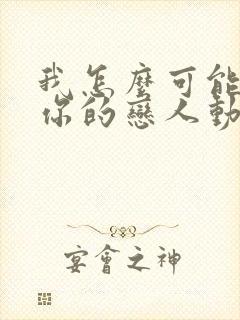 我怎麼可能
你的戀人動
宴會之神